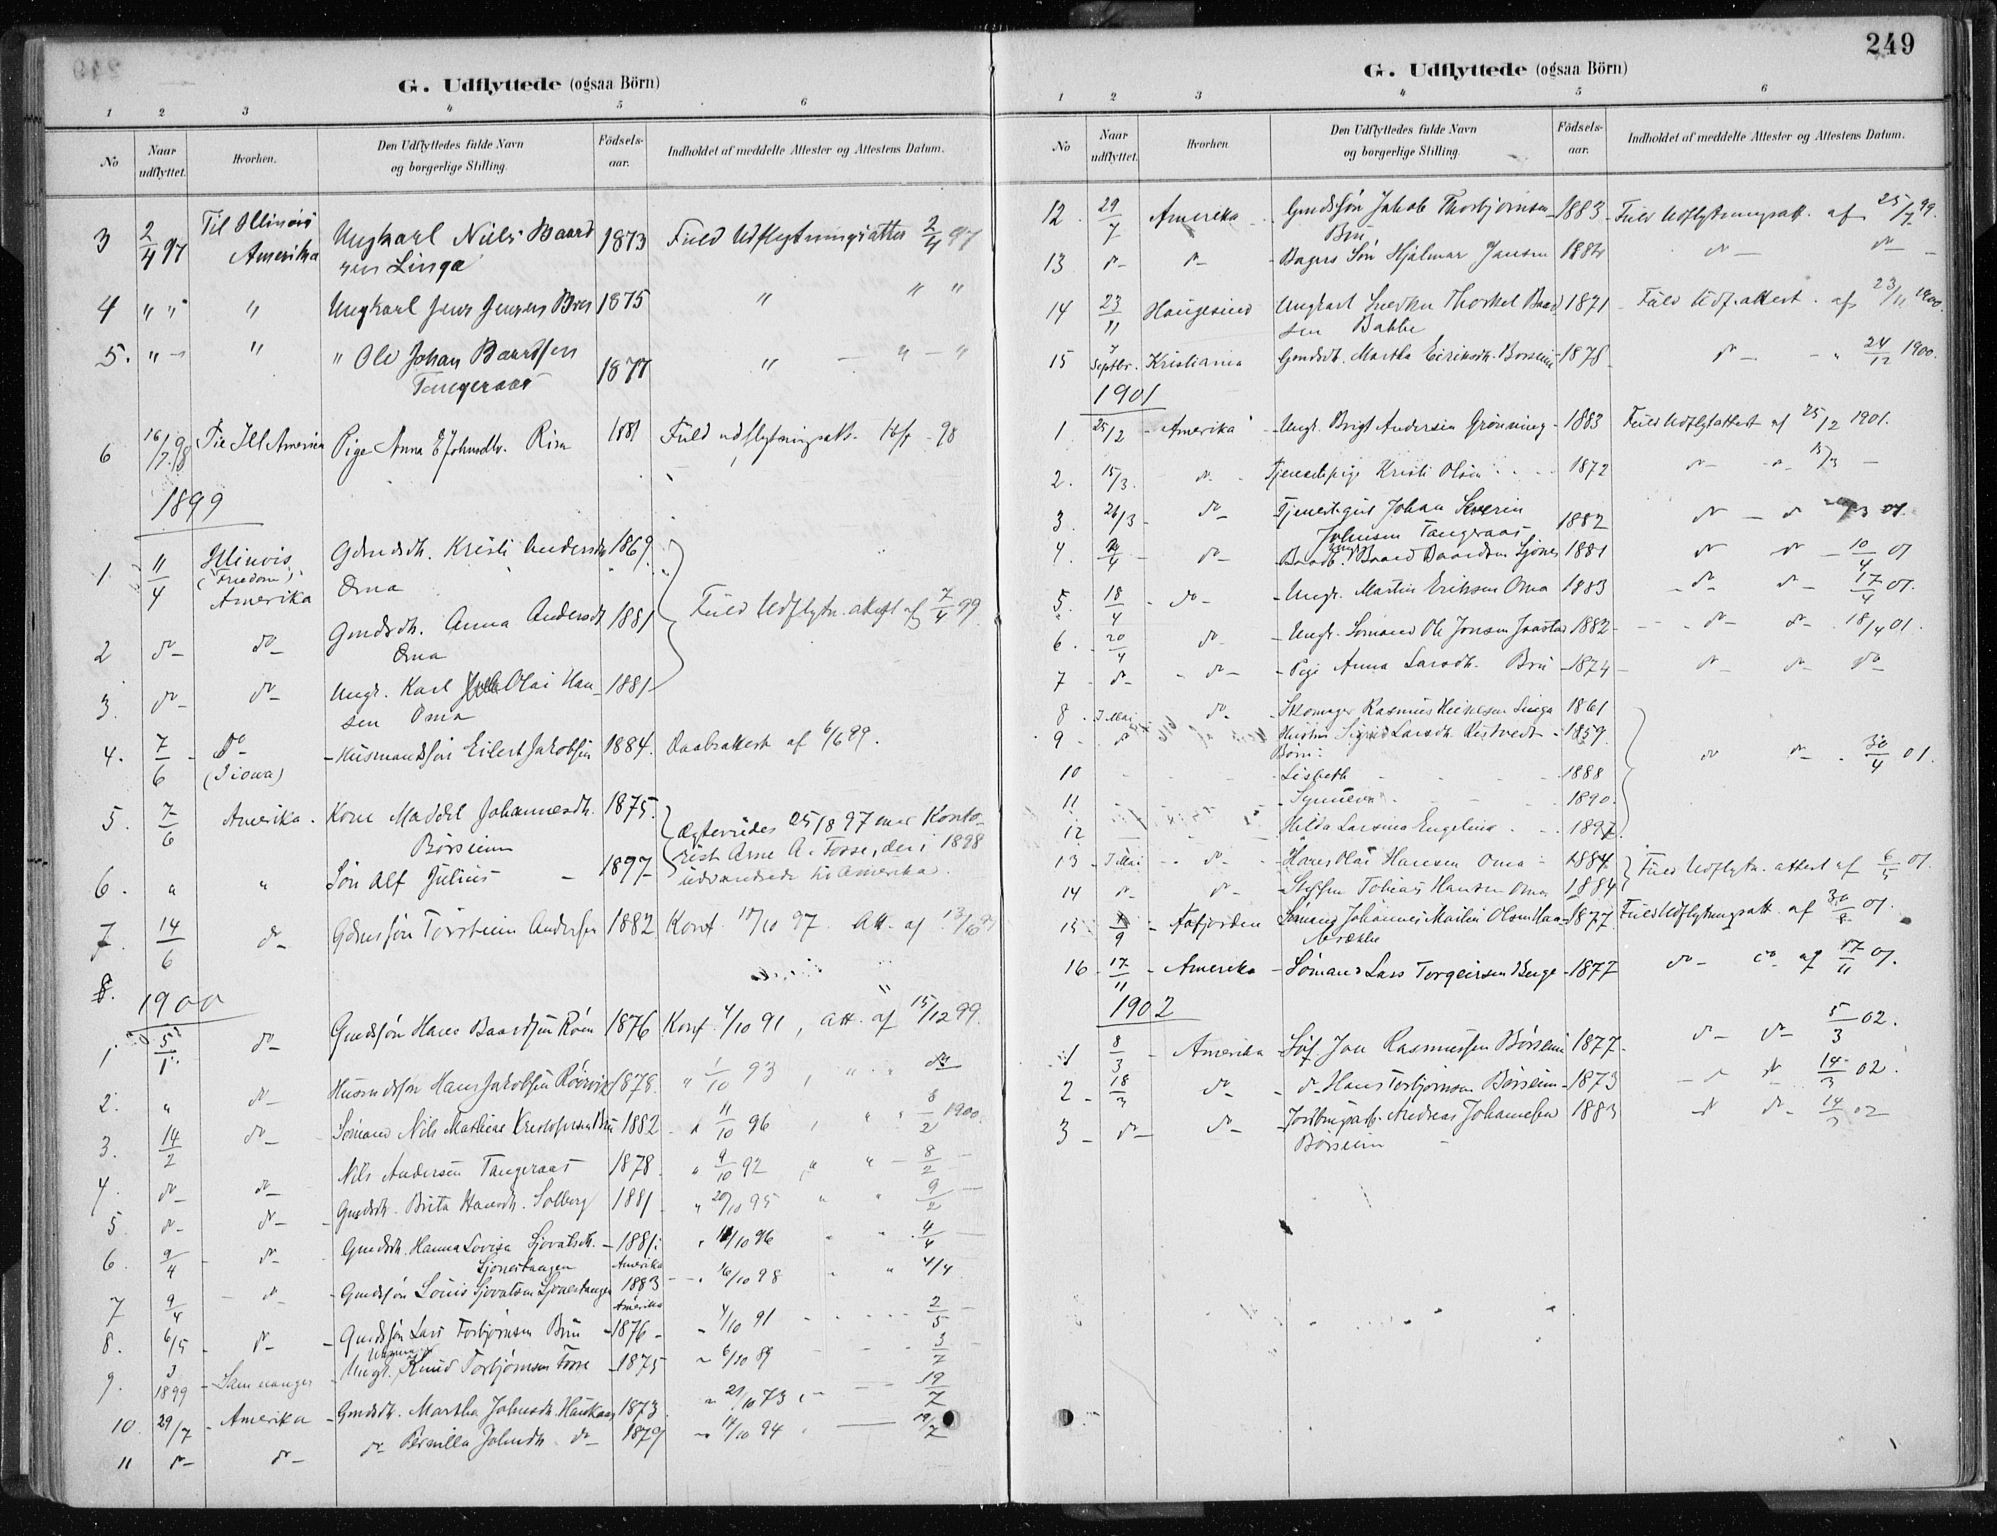 249
G. Udflyttede (ogsaa Börn)
1 2 3 4 5 6
No
Naar udflyttet.
Hvorhen.
Den Udflyttedes fulde Navn og borgerlige Stilling.
Födsels-aar.
Indholdet af meddelte Attester og Attestens Datum.
3 2/4 97 Til Illinois Ungkarl Niels Baard 1873 Fuld Udflytningsattes 2/4 97
Amerika sen Linga
4 " " " Ungkarl Jens Jensen 1875 " " "
5. " " " Ole Johan Baardsen 1877 " " "
Tangeraas
6 16/7 98 Til Ill Amerika Pige Anna E Johnsdtr. 1881 Fuld udflytningsatt. 98
1899
1 11/4 Illinois Gdmdsdt. Kristi Andersdt 1869.
(Freedom) Amerika Oma
2 do do Gmdsdt. Anna Andersdt 1881 Fuld Udflytn. attest af 7/4 99
Oma
3. do do Ungk. Karl Olai Han 1881
sen Oma
4. 7/6 do Husmandssøn Eilert Jakobsen 1884. Daabsattest af 6/6 99.
(Iiowa)
5. 7/6 Amerika. Kone Johannesdt. 1875. Ægteviedes 25/8 97 med Konto-
Børseim rist Arne A. Fosse, der i 1898
6. " " Søn Alf Julius 1897 udvandrede til Amerika.
7. 14/6 do Gdmssøn Torstein Andersen 1882 Konf. 10 97. Att. af 13/6
8.
1900
1 5/1 do Gmdssøn Hans Baardsen Røen 1876 Konf. 4/10 91, att. af 15/12 99.
2. " do Husmdssøn Hans Jakobsen 1878. " 1/10 93, " " do
3. 14/2 do Sømand Nils Mathias 1882 " 11/10 96 " " 8/2 1900.
4. do do Nils Andersen Tangeraas 1878. " 9/10 92 " " 8/2
5 do do Gmdsdt. Brita Hansdt. Solberg 1881 " 20/10 95 " " 9/2
6. 9/4 do Gmdsdt. Hanna Lovisa Sjovatsdt. 1881. " 11/10 96 " " 4/4
Sjonertangen Amerika
7 9/4 do Gmdssøn Louis Sjovatsen Sjonertangen 1883 " 16/10 98 " " 4/4
Amerika
8. 6/5 do Gmdssøn Lars Torbjørnsen Bru 1876 " 4/10 91 2/5
9. 3 1899 Samnanger Ungk. Knud Torbjørnsen Fosse 1875 " 6/10 89 3/7
10. 29/7 Amerika Gmdsdt. Martha Johnsdt. 1873 " 21/10 73 19/7
11 do do do Pernilla Johnsdt. do 1879 " 14/10 94 19/7
G. Udflyttede (ogsaa Börn)
1 2 3 4 5 6
No
Naar udflyttet.
Hvorhen.
Den Udflyttedes fulde Navn og borgerlige Stilling.
Födsels-aar.
Indholdet af meddelte Attester og Attestens Datum.
12. 29/7 Amerika Gmdssøn Jakob Thorbjørnsen 1883 Fuld Udflytningsatt. af 25/7 99.
Bru
13 do do Bagers Søn Hjalmar Jansen 1884 do do
14 23/11 Haugesund Ungkarl Snedker Thorkel Baard 1871 Fuld Udf. attest. af 23/11 1900.
sen Bakke
15 7 Septbr. Kristiania Gmdsdt. Martha Eiriksdt. Børseim 1878 do " 24/12 1900.
1901
1 25/2 Amerika Ungk. Brigt Andersen Grønning 1883 Fuld Udflytattest af 25/2 1901.
2. 15/3. do Tjenestepige Kristi Olsen 1872 do do 15/3
3. 26/3 do Tjenestegut Johan Severin 1882 do do 3 01.
Johnsen Tangeraas
4. 4 do Baard Baardsen Sjones 1881 do do 10/4 01
5. 18/4 do Ungk. Martin Eriksen Oma 1883 do do 17/4 01.
6. 20/4 do Ungk. Sømand Ole Jonsen Jaastad 1882 do do 18/4 01.
7 do do Pige Anna Larsdt. Bru 1874 do do do
8. I Mai do Skomager Rasmus Linga 1861
9 do Hustru Sigrid Larsdt. 1859.
Børn:
10 Lisbeth 1888 do do 30/4 01.
11 Synneva 1890.
12 Hilda Larsina Engeline 1897.
13 I Mai do Hans Olai Hansen Oma 1884 Fuld Udflytn. attest af 6/5 01.
14 do do Steffen Tobias Hansen Oma 1884
15 9 Aafjorden Sømand Johannes Martin Olsen 1877 Fuld Udflytningsatt. af 30/8 01.
16 17/11 Amerika Sømand Lars Torgeirsen Berge 1877 do do af 17/11 01.
1902
1 8/3 Amerika Søf Jon Rasmussen Børseim 1877 do do 5/3 02.
2 18/3 do do Hans Torbjørnsen Børseim 1873 do do 14/3 02.
3 do do Jordbrugsarb. Andreas Johannesen 1883 do do 14/3 02
Børseim